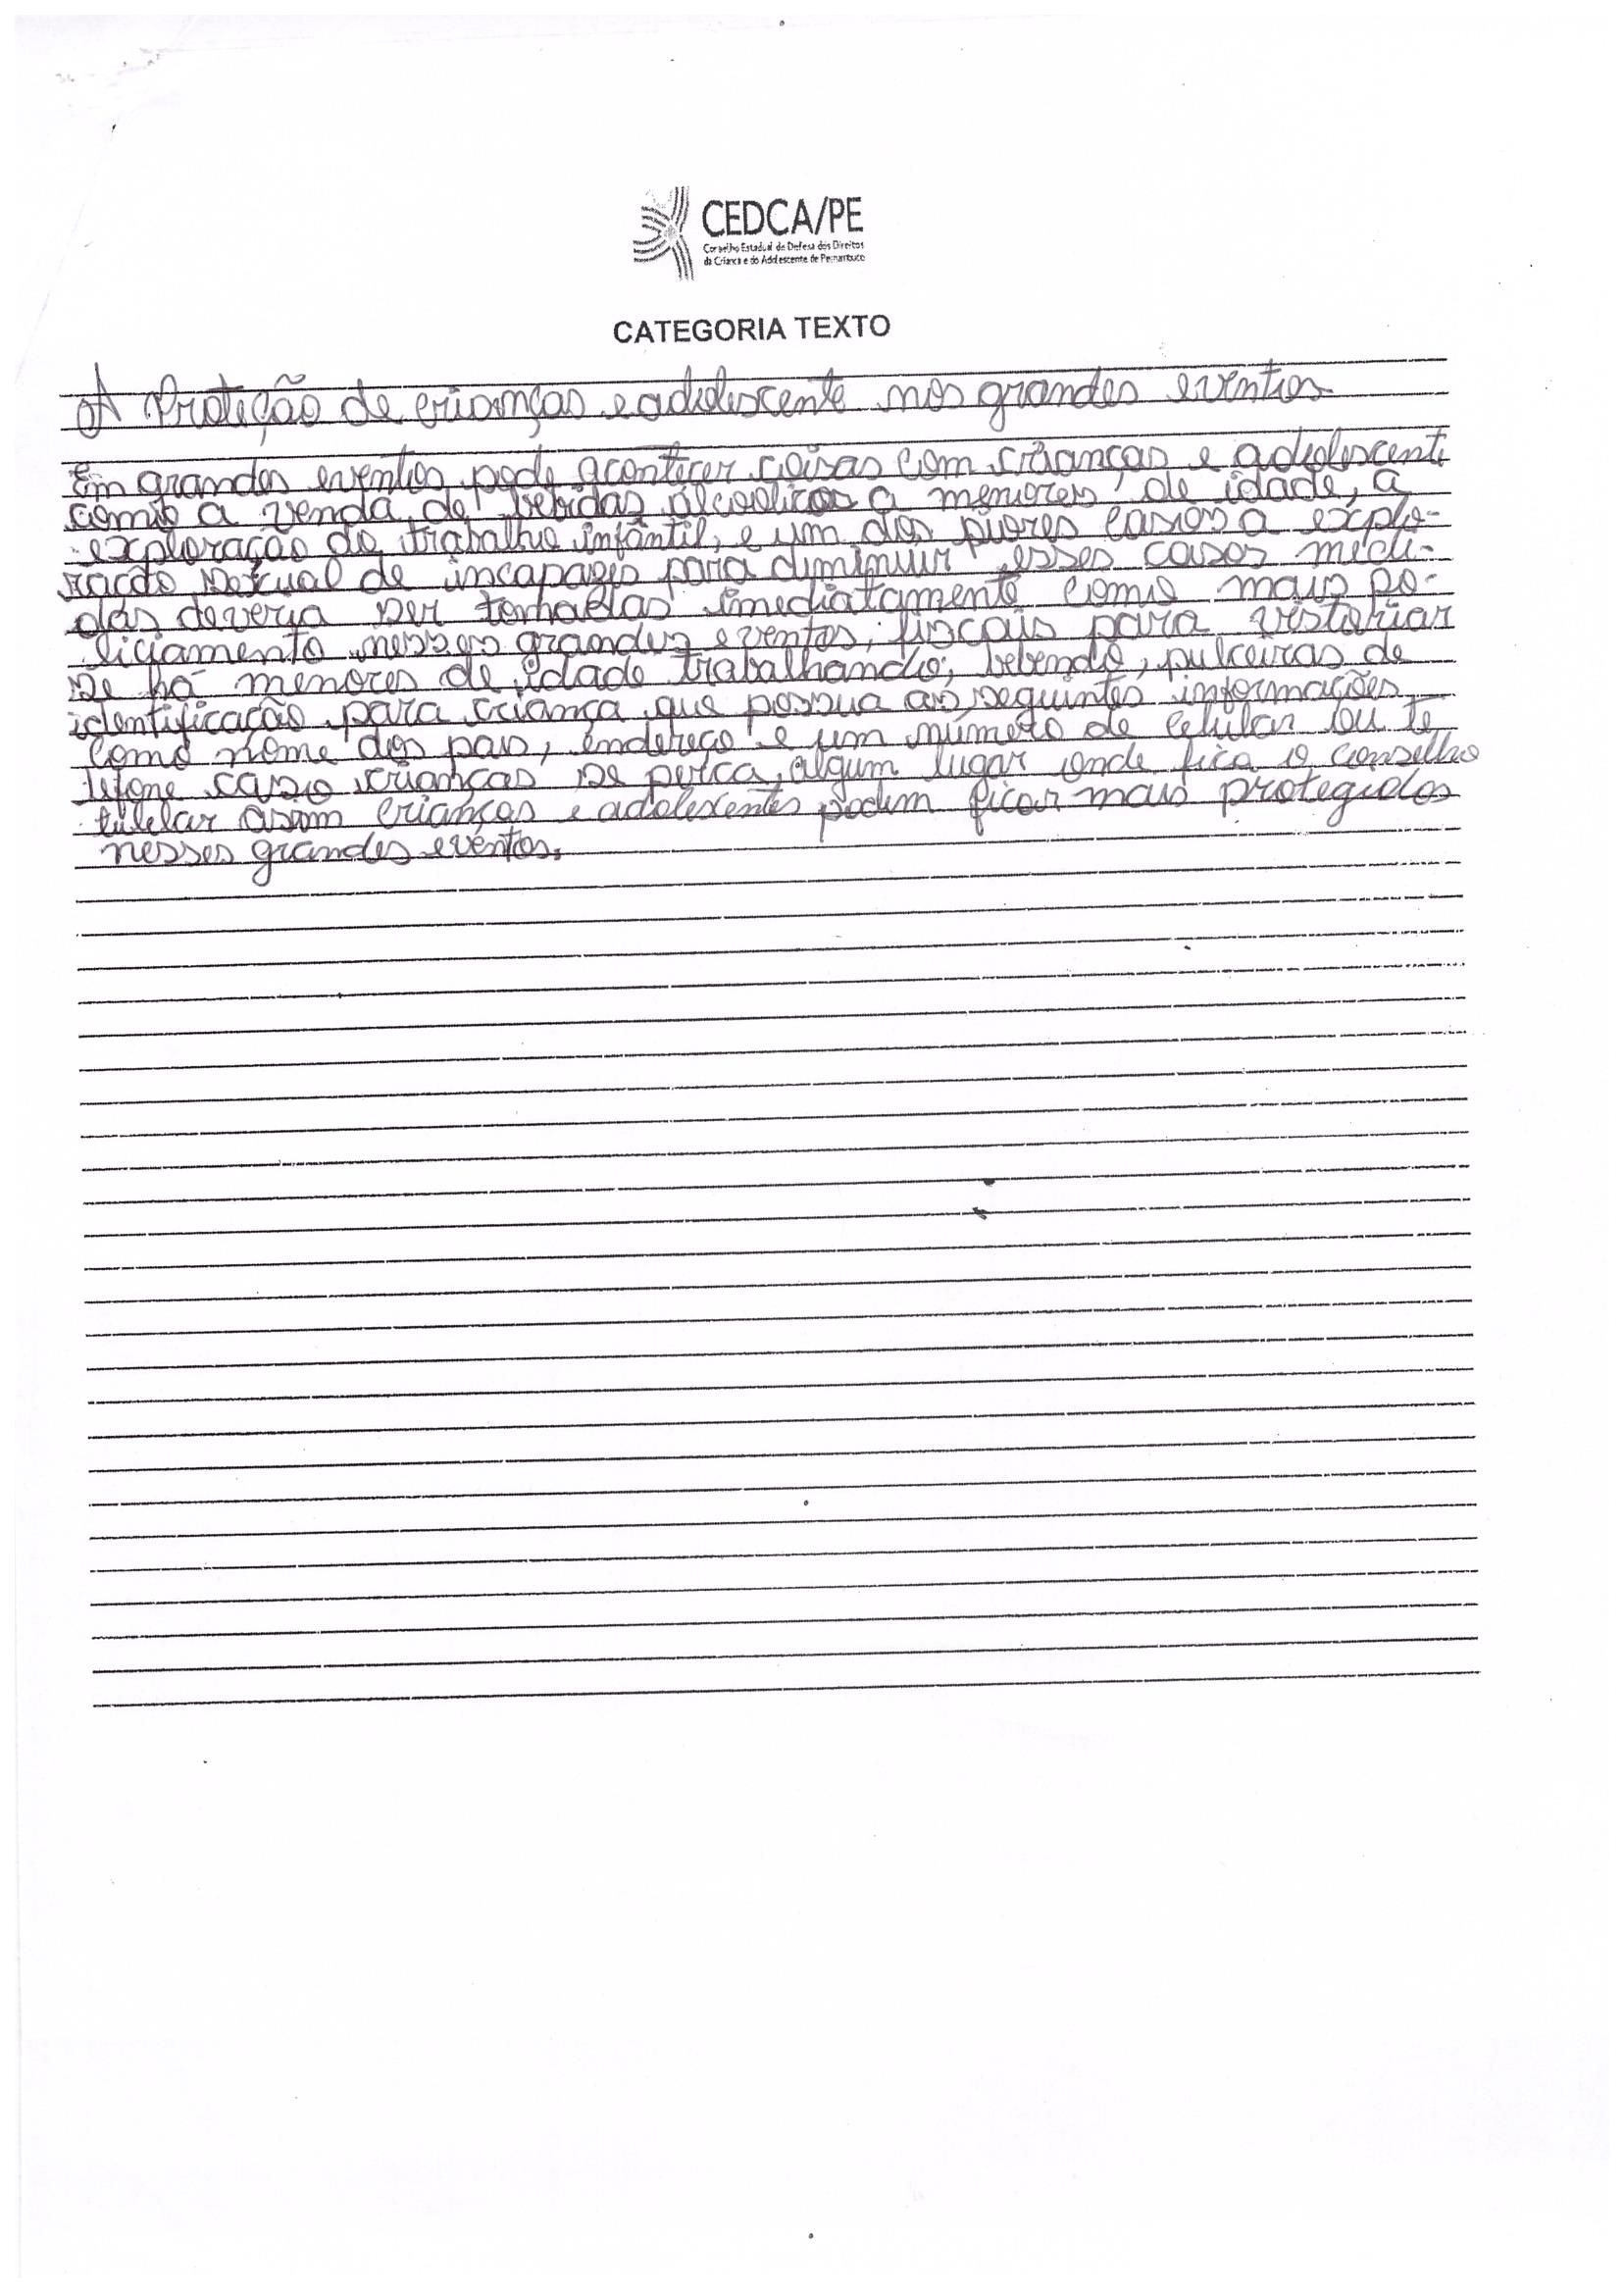 CEDCA/PE
Conselho Estadual de Defesa dos Direitos
da Criança e do Adolescente de Pernambuco
CATEGORIA TEXTO
A Proteção de crianças e adolescente nos grandes eventos.
Em grandes eventos pode acontecer coisas com crianças e adolescente
como a venda de bebidas alcoolicas a menores de idade, a
exploração do trabalho infântil, e um dos piores casos a explo-
ração sexual de incapazes para diminuir esses casos medi-
das deveria ser tomadas imediatamente como mais po-
liciamento nesses grandes eventos, fiscais para vistoriar
se há menores de idade trabalhando, bebendo, pulceiras de
identificação para criança que possua as seguintes informações
como nome dos pais, endereço e um número de celular ou te
lefone caso crianças se perca, algum lugar onde fica o conselho
tutelar assim crianças e adolescentes podem ficar mais protegidos
nesses grandes eventos.